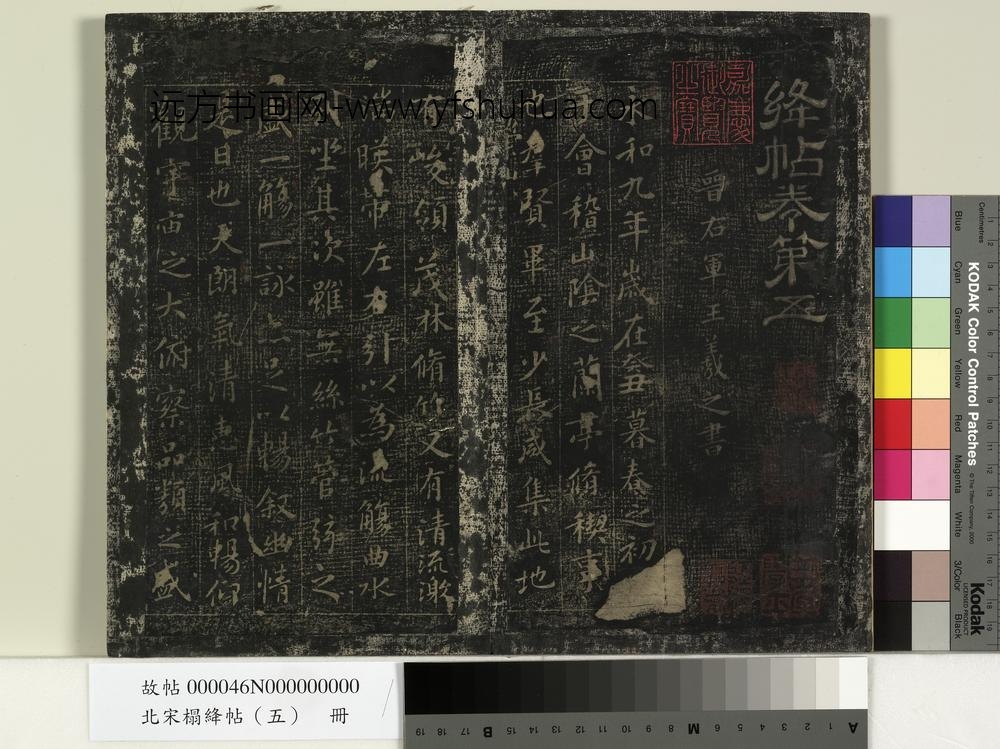 絳帖卷第五
晉右軍王羲之書
永和九年歲在癸丑暮春之初
會會稽山陰之蘭亭脩稧事
也羣賢畢至少長咸集此地
有峻領茂林脩竹又有清流激
湍暎帶左右引以為流觴曲水
列坐其次雖無絲竹管弦之
盛一觴一詠亦足以暢敘幽情
是日也天朗氣清惠風和暢仰
觀宇宙之大俯察品類之盛
嘉慶御覽之寶
远方书画网-www.yfshuhua.com
故帖 000046N000000000
北宋榻絳帖（五） 冊
KODAK Color Control Patches
© The Tiffen Company, 2000
Kodak
LICENSED PRODUCT
Centimetres
Blue
Cyan
Green
Yellow
Red
Magenta
White
3/Color
Black
1 2 3 4 5 6 7 8 9 10 11 12 13 14 15 16 17 18 19
A 1 2 3 4 5 6 M 8 9 10 11 12 13 14 15 B 17 18 19